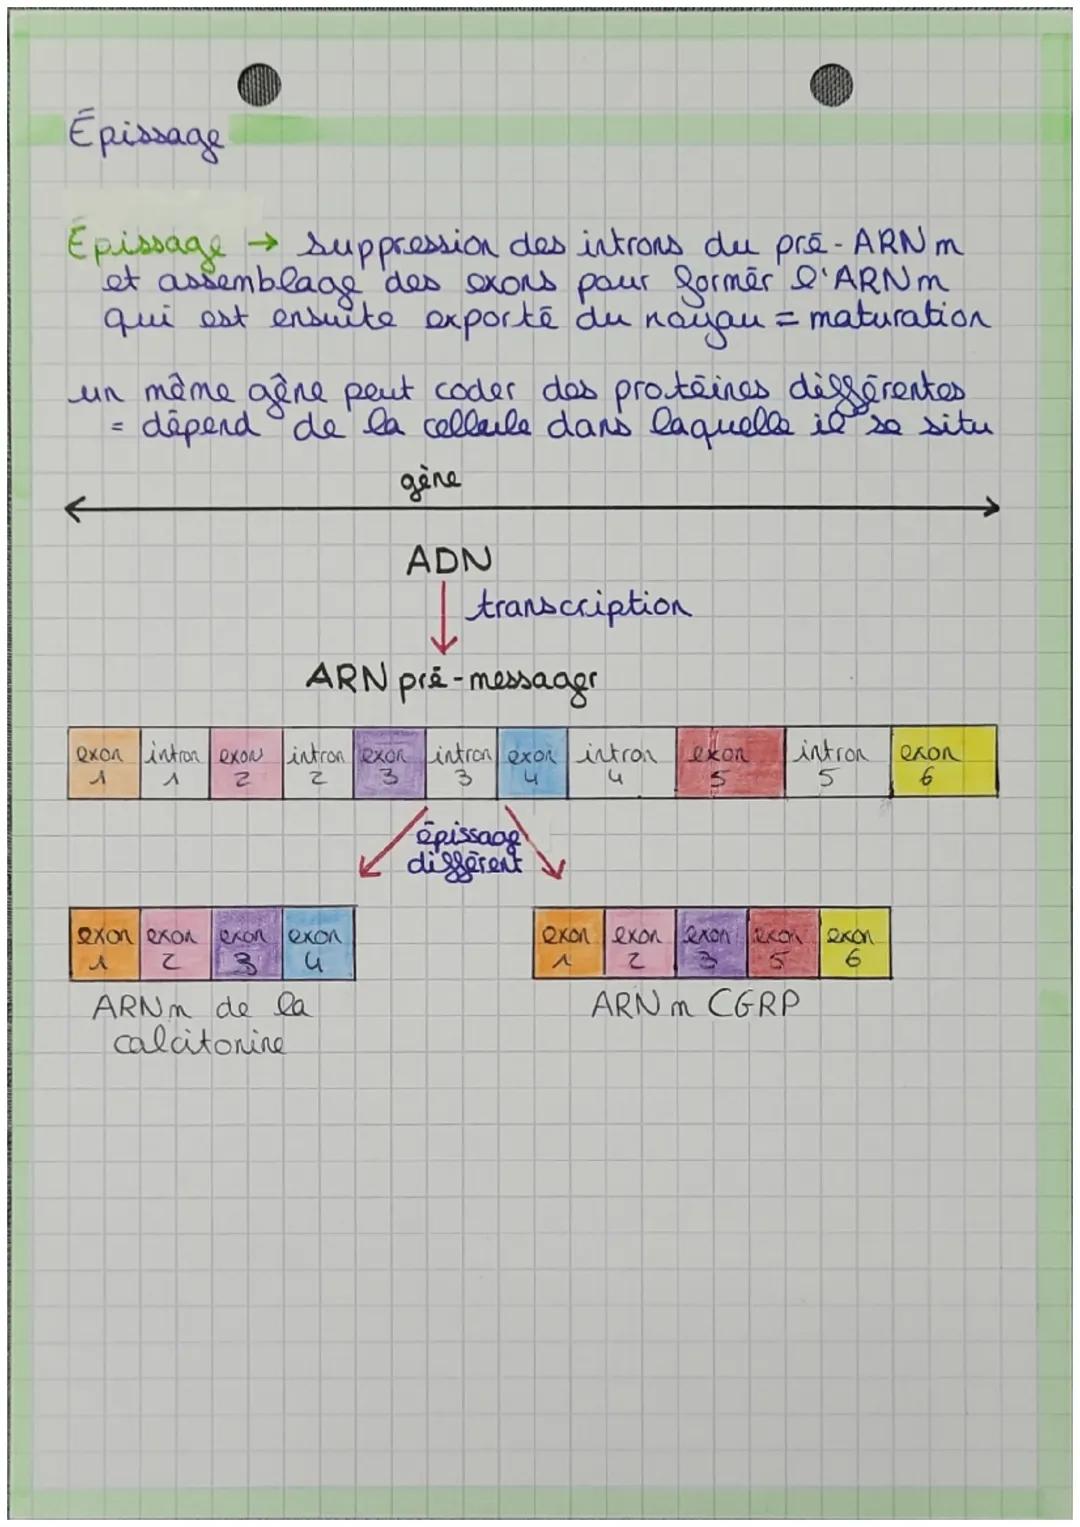 Épissage
Épissage → suppression des introns du pré-ARNm
et assemblage des exons pour formér l'ARNm
qui est ensuite exporté du noyau = maturation
un même gêne peut coder des protéines différentes
= dépend de la cellule dans laquelle il se situ
gène
ADN
transcription
ARN pré-messager
exon intron exon intron exon intron exon intron exon intron exon
1 1 2 2 3 3 4 4 5 5 6
épissage
différent
exon exon exon exon exon exon exon exon exon
1 2 3 4 1 2 3 5 6
ARNm de la ARNm CGRP
calcitonine